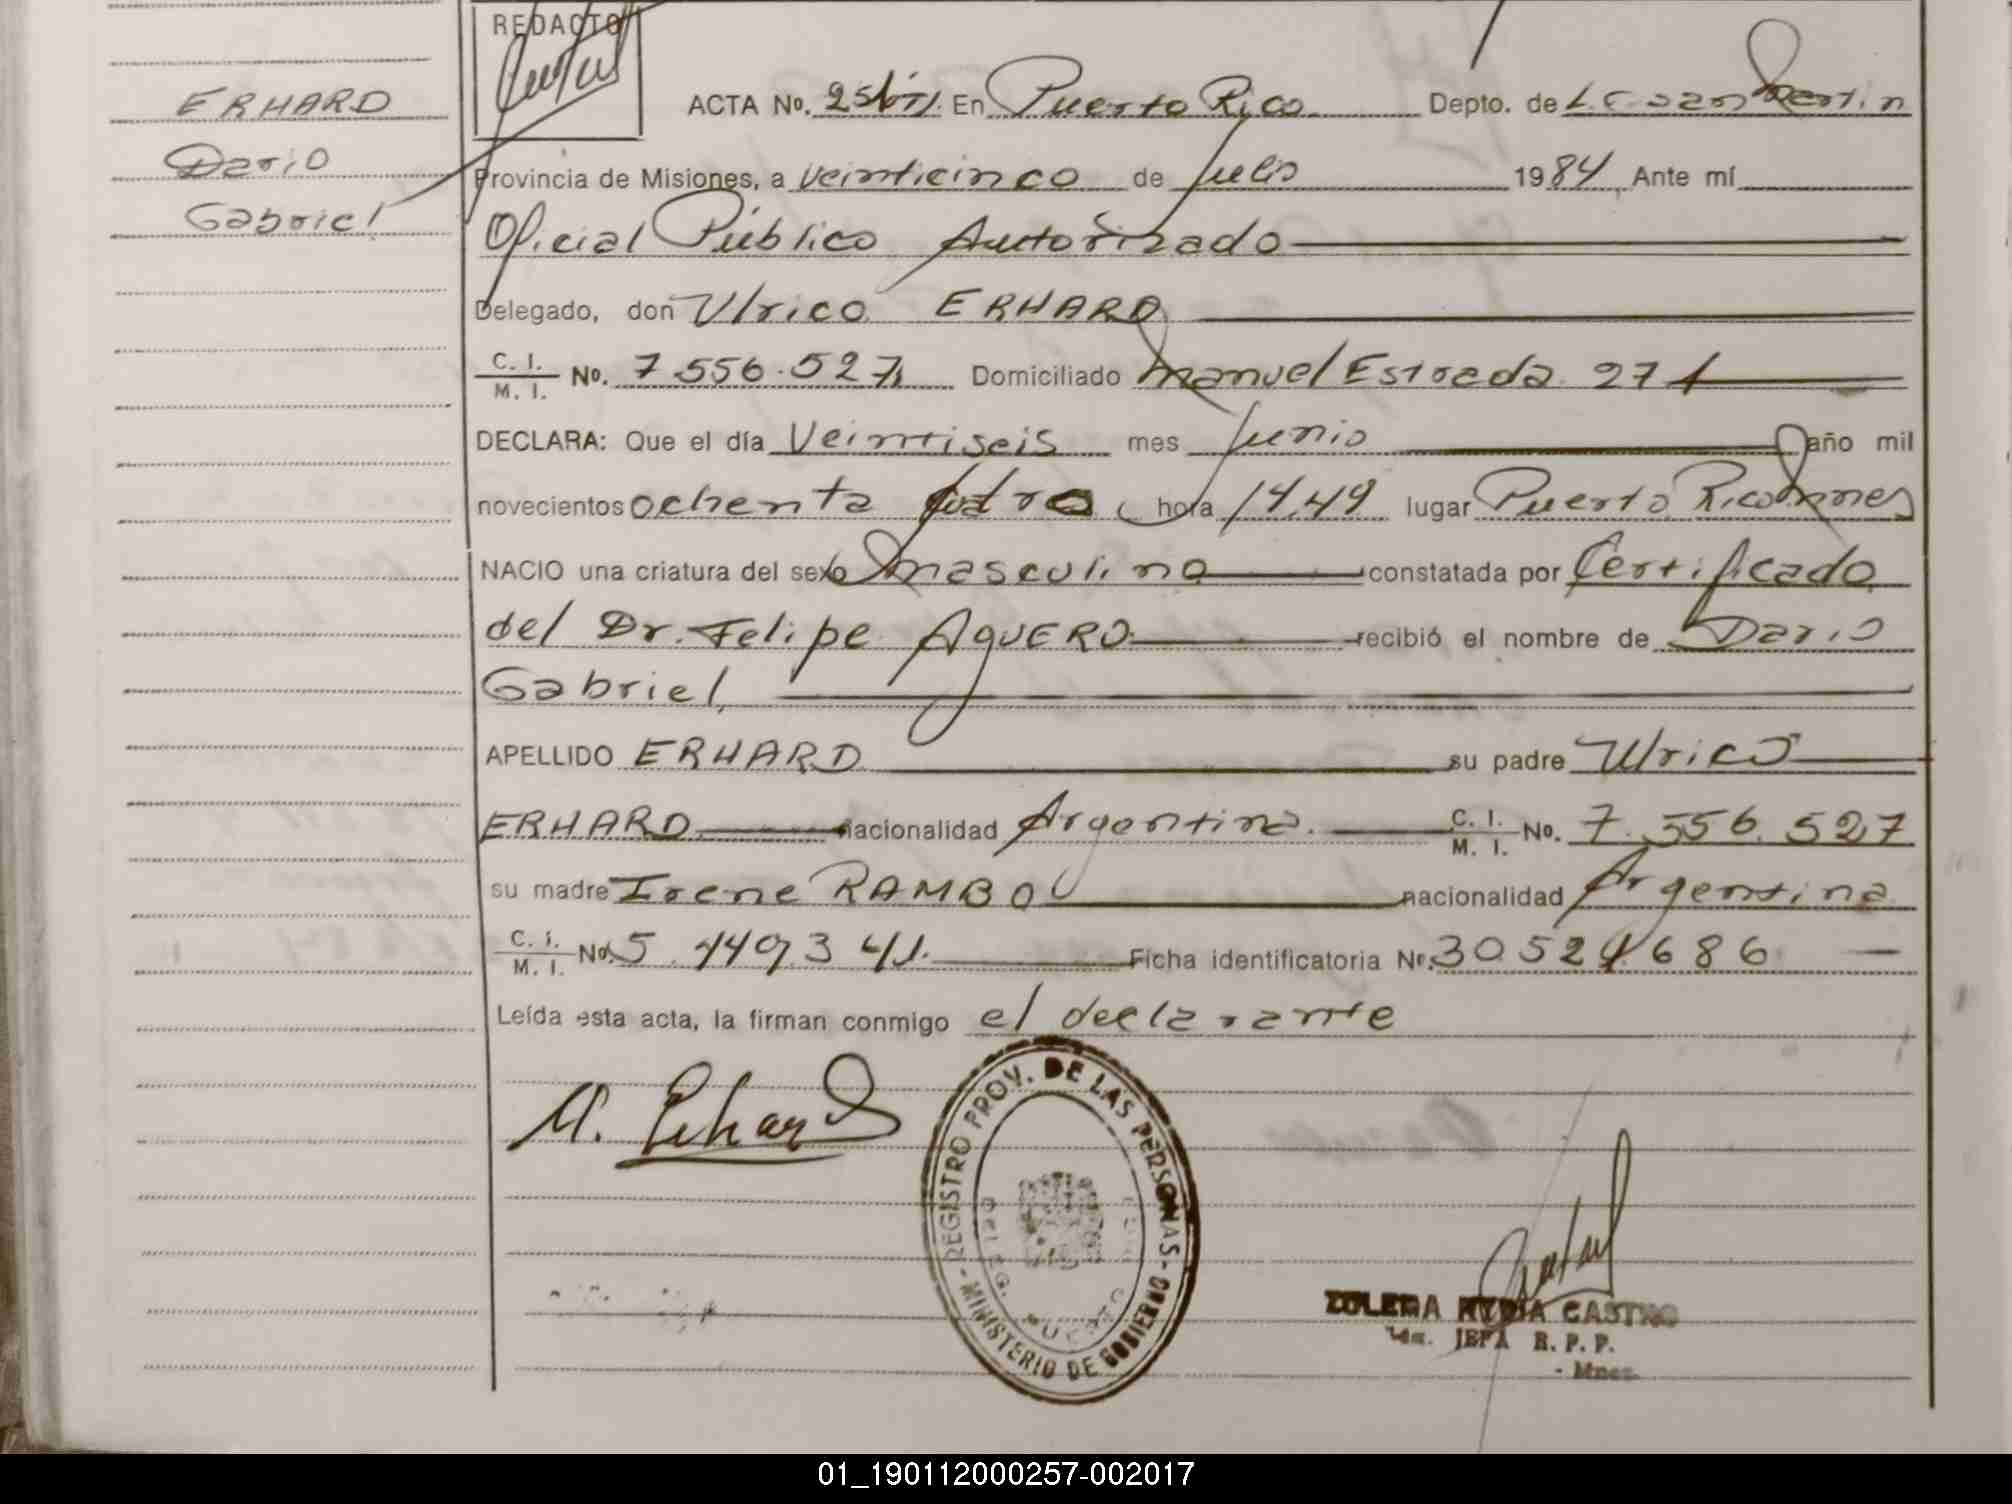 REDACTO
ERHARD
Dario
Gabriel
ACTA No. En Puerto Rico Depto. de L. G. San Martin
Provincia de Misiones, a veinticinco de Julio 1984 Ante mí
Oficial Público Autorizado
Delegado, don Ulrico ERHARD
C. I. / M. I. No. 7.556.527 Domiciliado Manuel Estrada 271
DECLARA: Que el día Veintiseis mes Junio año mil
novecientos ochenta hora 14,49 lugar Puerto Rico Mnes
NACIO una criatura del sexo masculino constatada por Certificado
del Dr. Felipe AGUERO recibió el nombre de Dario
Gabriel
APELLIDO ERHARD su padre Ulrico
ERHARD nacionalidad Argentina C. I. / M. I. No. 7.556.527
su madre Irene RAMBO nacionalidad Argentina
C. I. / M. I. No. Ficha identificatoria No. 30521686
Leída esta acta, la firman conmigo el declarante
U. Erhard
REGISTRO PROV. DE LAS PERSONAS - MINISTERIO DE GOBIERNO -
CASTRO
JEFA R. P. P.
- Mnes.
01_190112000257-002017